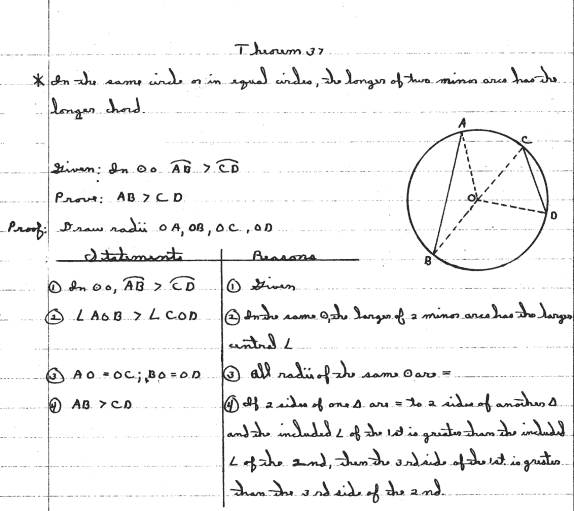 Theorem 37
* In the same circle or in equal circles, the longer of two minor arcs has the
longer chord.
Given: In ⊙O AB > CD
Prove: AB > CD
Proof: Draw radii OA, OB, OC, OD
Statements Reasons
① In ⊙O, AB > CD ① Given
② ∠AOB > ∠COD ② In the same ⊙, the larger of 2 minor arcs has the larger
central ∠
③ AO = OC; BO = OD ③ All radii of the same ⊙ are =
④ AB > CD ④ If 2 sides of one △ are = to 2 sides of another △
and the included ∠ of the 1st is greater than the included
∠ of the 2nd, then the 3rd side of the 1st. is greater
than the 3rd side of the 2nd.
A
C
O
D
B